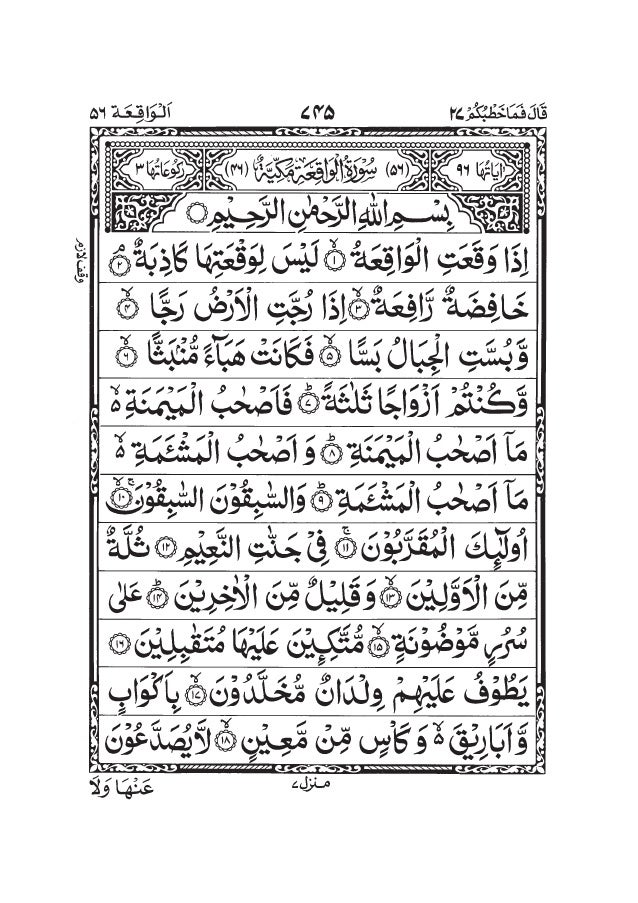 قَالَ فَمَاخَطْبُكُمْ ٢٧ ٧٤٥ اَلْوَاقِعَة ٥٦
اٰيَاتُهَا ٩٦ (٥٦) سُوْرَةُ الْوَاقِعَةِ مَكِّيَّةٌ (٤٦) رُكُوْعَاتُهَا ٣
بِسْمِ اللّٰهِ الرَّحْمٰنِ الرَّحِيْمِ
اِذَا وَقَعَتِ الْوَاقِعَةُ ۙ‏﴿١﴾ لَيْسَ لِوَقْعَتِهَا كَاذِبَةٌ ۘ‏﴿٢﴾
وقف لازم
خَافِضَةٌ رَّافِعَةٌ ۙ‏﴿٣﴾ اِذَا رُجَّتِ الْاَرْضُ رَجًّا ۙ‏﴿٤﴾
وَّبُسَّتِ الْجِبَالُ بَسًّا ۙ‏﴿٥﴾ فَكَانَتْ هَبَآءً مُّنْۢبَثًّا ۙ‏﴿٦﴾
وَّكُنْتُمْ اَزْوَاجًا ثَلٰثَةً ؕ‏﴿٧﴾ فَاَصْحٰبُ الْمَيْمَنَةِ ۙ۬
مَاۤ اَصْحٰبُ الْمَيْمَنَةِ ؕ‏﴿٨﴾ وَ اَصْحٰبُ الْمَشْئَمَةِ ۙ۬
مَاۤ اَصْحٰبُ الْمَشْئَمَةِ ؕ‏﴿٩﴾ وَالسّٰبِقُوْنَ السّٰبِقُوْنَ ۚۙ‏﴿١٠﴾
اُولٰٓئِكَ الْمُقَرَّبُوْنَ ۚ‏﴿١١﴾ فِيْ جَنّٰتِ النَّعِيْمِ ‏﴿١٢﴾ ثُلَّةٌ
مِّنَ الْاَوَّلِيْنَ ۙ‏﴿١٣﴾ وَ قَلِيْلٌ مِّنَ الْاٰخِرِيْنَ ؕ‏﴿١٤﴾ عَلٰى
سُرُرٍ مَّوْضُوْنَةٍ ۙ‏﴿١٥﴾ مُّتَّكِـِٕيْنَ عَلَيْهَا مُتَقٰبِلِيْنَ ‏﴿١٦﴾
يَطُوْفُ عَلَيْهِمْ وِلْدَانٌ مُّخَلَّدُوْنَ ۙ‏﴿١٧﴾ بِاَكْوَابٍ
وَّ اَبَارِيْقَ ۙ۬ وَ كَاْسٍ مِّنْ مَّعِيْنٍ ۙ‏﴿١٨﴾ لَّا يُصَدَّعُوْنَ
منزل ٧
عَنْهَا وَلَا